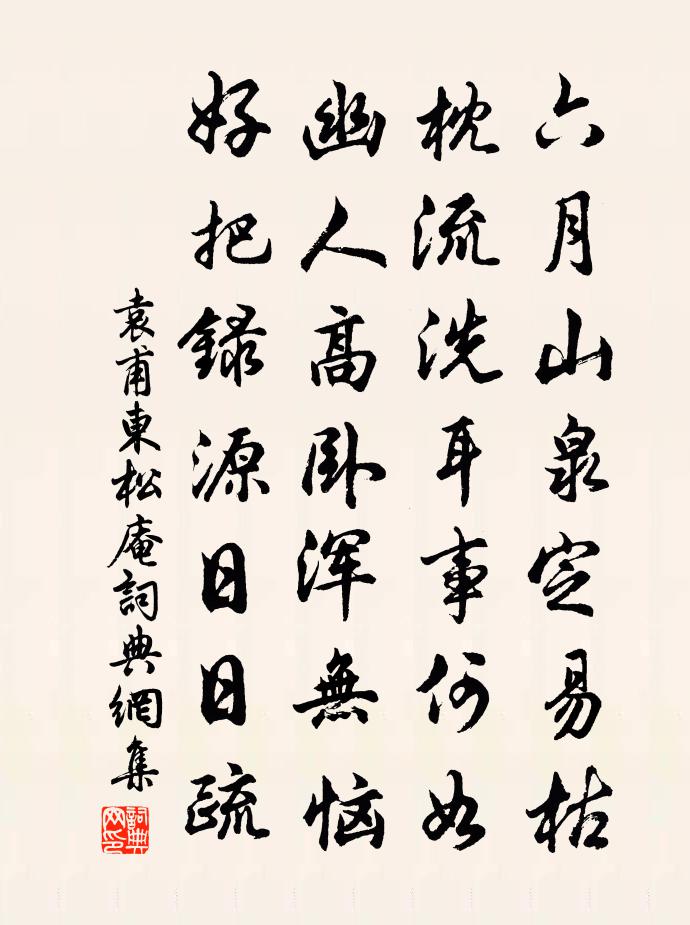 六月山泉定易枯
枕流洗耳事何如
幽人高卧浑無恼
好把録源日日疏
袁甫東松庵詞典網集
詞典網印